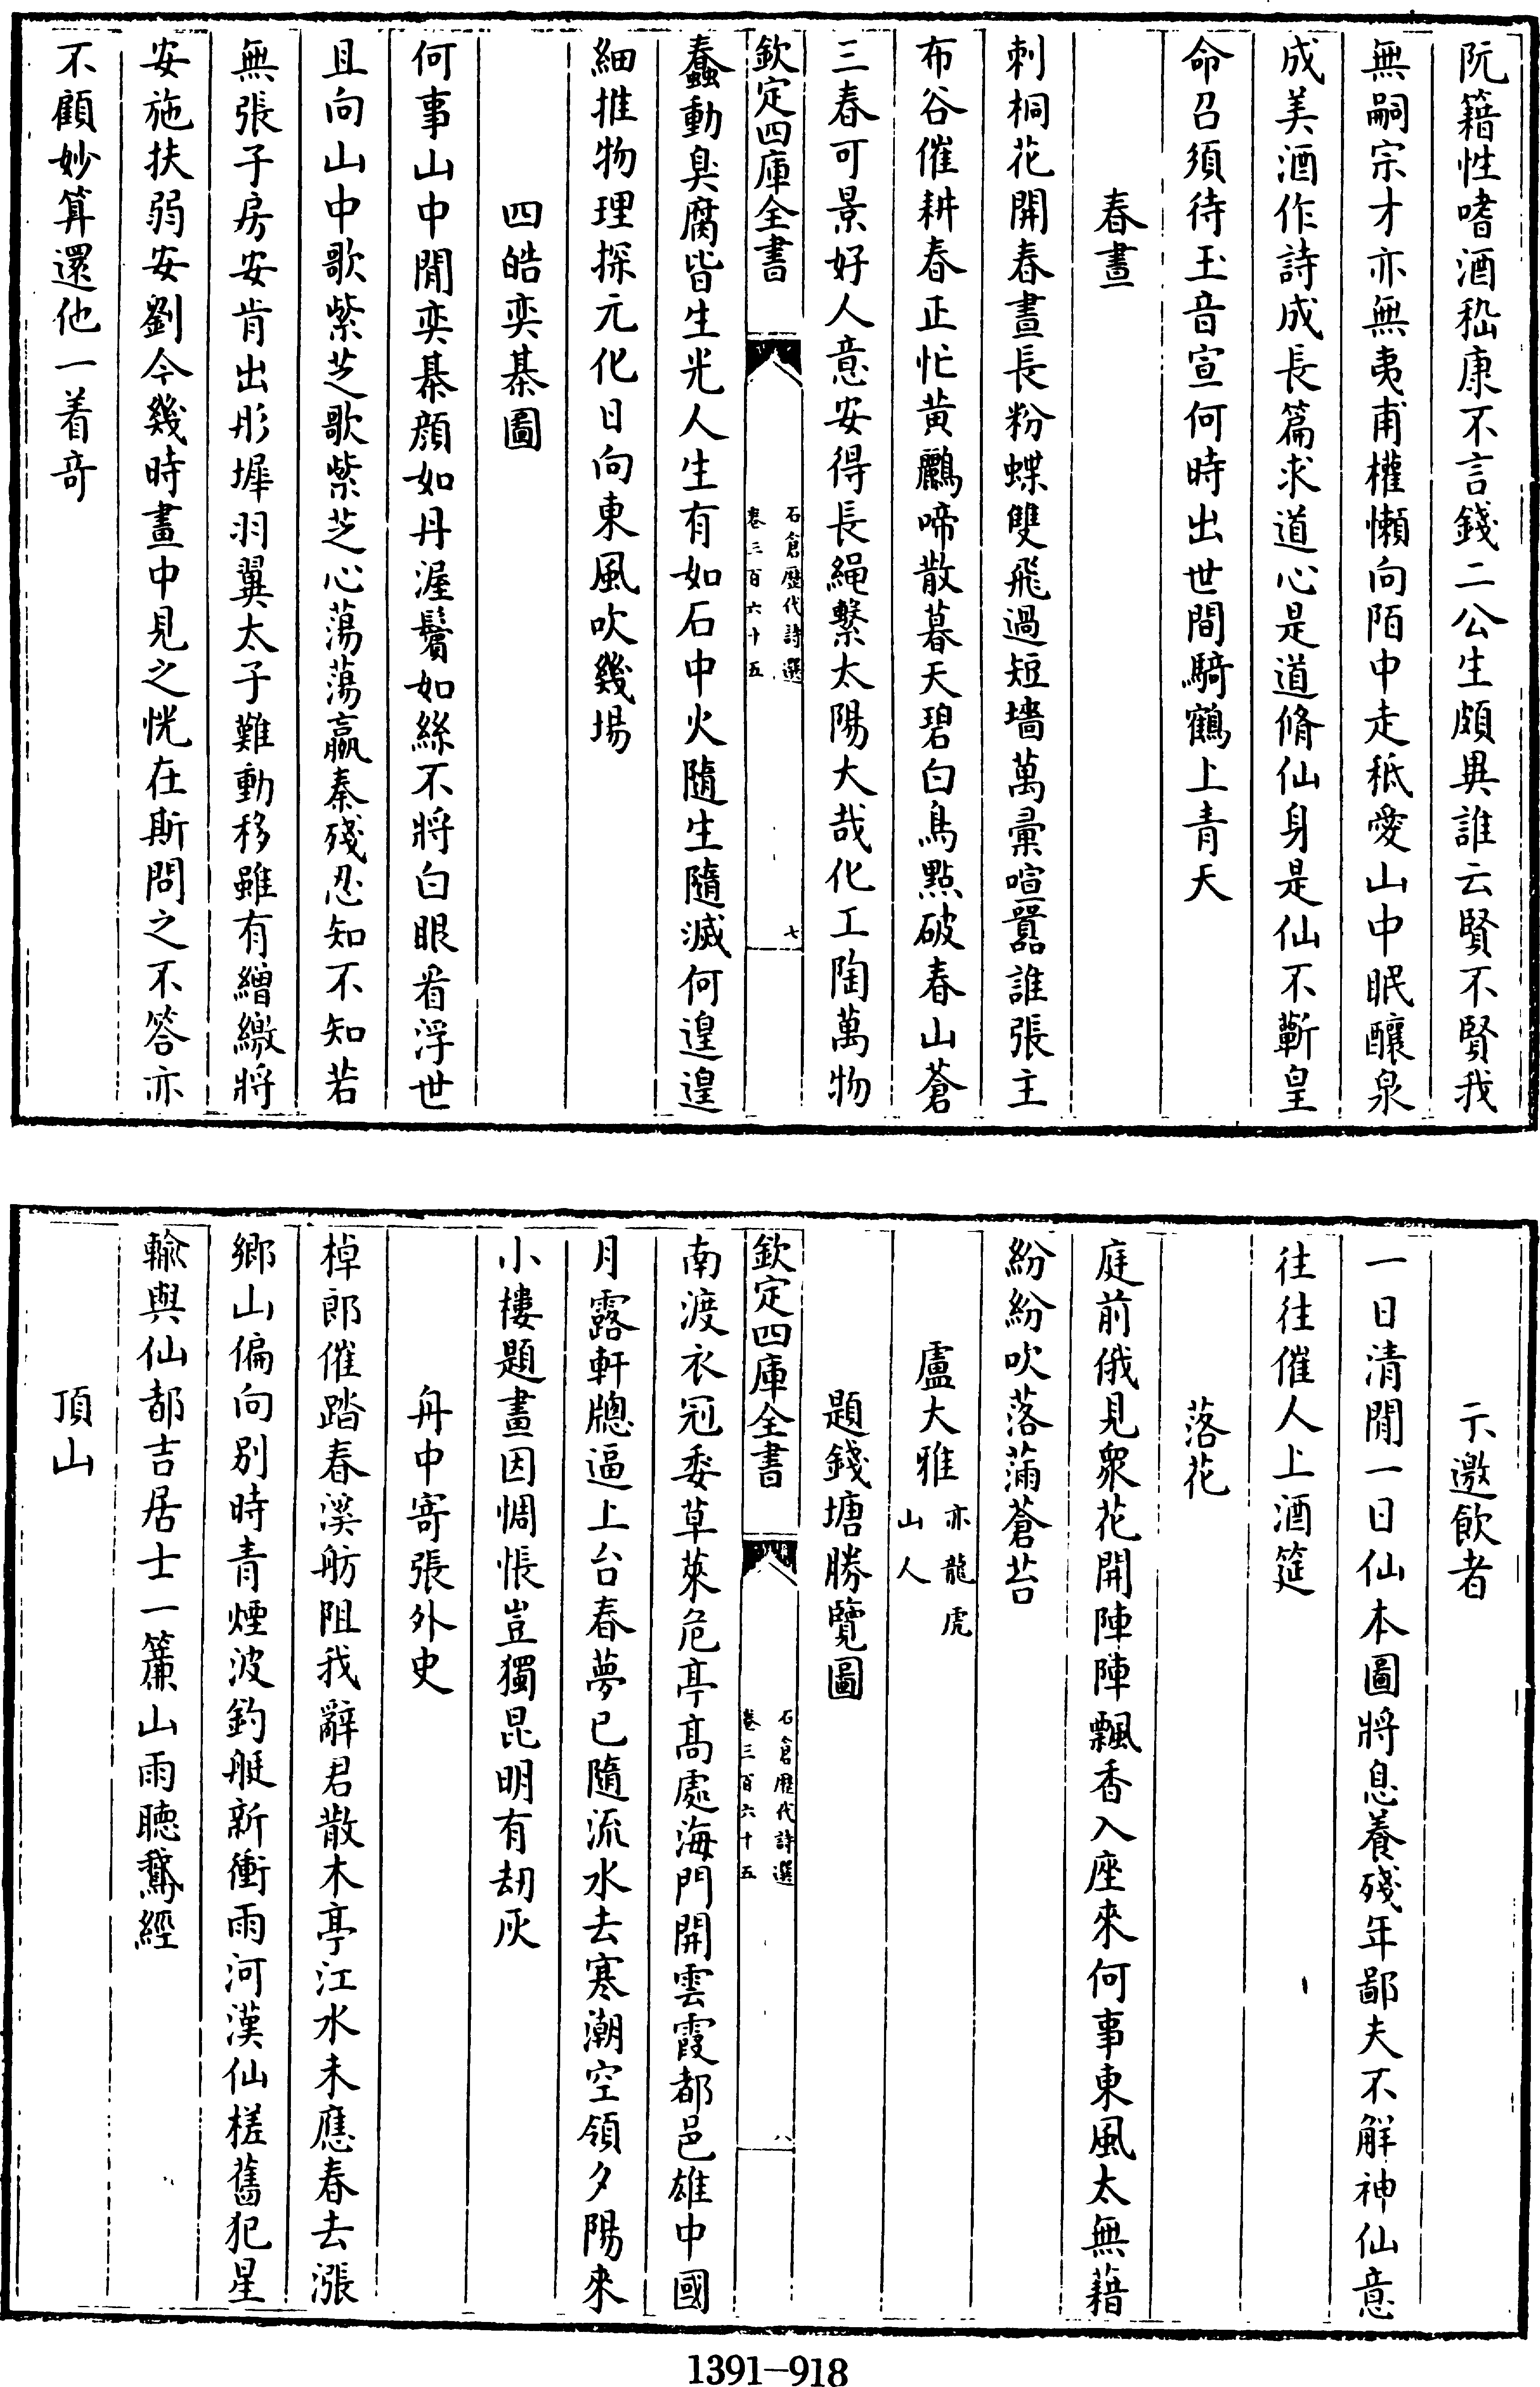 阮籍性嗜酒嵇康不言錢二公生頗異誰云賢不賢我
無嗣宗才亦無夷甫權懶向陌中走秪愛山中眠釀泉
成美酒作詩成長篇求道心是道脩仙身是仙不蘄皇
命召須待玉音宣何時出世間騎鶴上青天
春晝
刺桐花開春晝長粉蝶雙飛過短墻萬彚喧囂誰張主
布谷催耕春正忙黄鸝啼散暮天碧白鳥點破春山蒼
三春可景好人意安得長繩繫太陽大哉化工陶萬物
欽定四庫全書
石倉歷代詩選
卷三百六十五
七
蠢動臭腐皆生光人生有如石中火隨生隨滅何遑遑
細推物理探元化日向東風吹幾場
四皓奕棊圖
何事山中閒奕棊顔如丹渥鬢如絲不將白眼看浮世
且向山中歌紫芝歌紫芝心蕩蕩嬴秦殘忍知不知若
無張子房安肯出彤墀羽翼太子難動移雖有繒繳將
安施扶弱安劉今幾時畫中見之恍在斯問之不答亦
不顧妙算還他一着奇
示邀飲者
一日清閒一日仙本圖將息養殘年鄙夫不解神仙意
往往催人上酒筵
落花
庭前俄見衆花開陣陣飄香入座來何事東風太無藉
紛紛吹落蒲蒼苔
盧大雅
亦龍虎
山人
題錢塘勝覽圖
欽定四庫全書
石倉歷代詩選
卷三百六十五
八
南渡衣冠委草萊危亭髙處海門開雲霞都邑雄中國
月露軒牕逼上台春夢已隨流水去寒潮空領夕陽來
小樓題畫因惆悵豈獨昆明有刼灰
舟中寄張外史
棹郎催踏春溪舫阻我辭君散木亭江水未應春去漲
鄉山偏向别時青煙波釣艇新衝雨河漢仙槎舊犯星
輸與仙都吉居士一簾山雨聴鵞經
頂山
1391-918